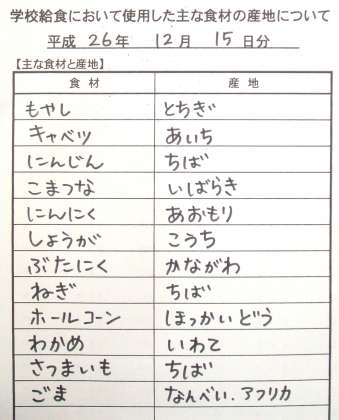 学校給食において使用した主な食材の産地について
平成 26年 12月 15日分
【主な食材と産地】
食材 産地
もやし とちぎ
キャベツ あいち
にんじん ちば
こまつな いばらき
にんにく あおもり
しょうが こうち
ぶたにく かながわ
ねぎ ちば
ホールコーン ほっかいどう
わかめ いわて
さつまいも ちば
ごま なんべい.アフリカ